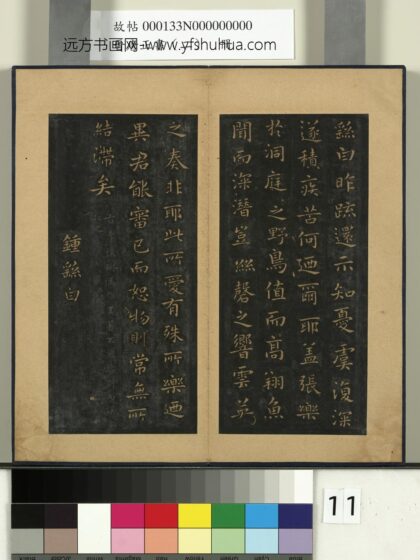 故帖 000133N000000000
远方书画网 www.yfshuhua.com
繇白昨疏還示知憂虞復深
遂積疾苦何迺爾耶蓋張樂
於洞庭之野鳥值而高翔魚
聞而深潛豈絲磬之響雲英
之奏非耶此所愛有殊所樂迺
異君能審己而恕物則常無所
結滯矣
鍾繇白
11